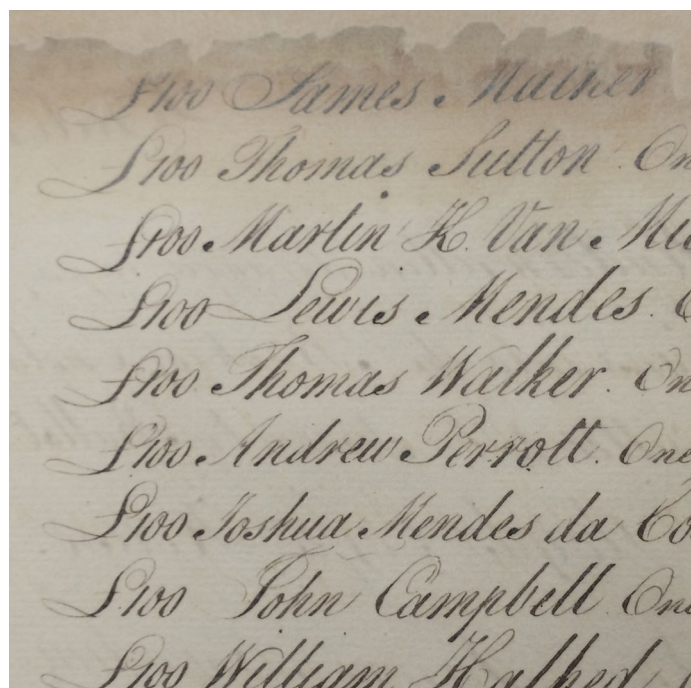 £100 James Mather
£100 Thomas Sutton On
£100 Martin K. Van M
£100 Lewis Mendes.
£100 Thomas Walker. On
£100 Andrew Perrott. One
£100 Joshua Mendes da Co
£100 John Campbell. One
£100 William Halhed